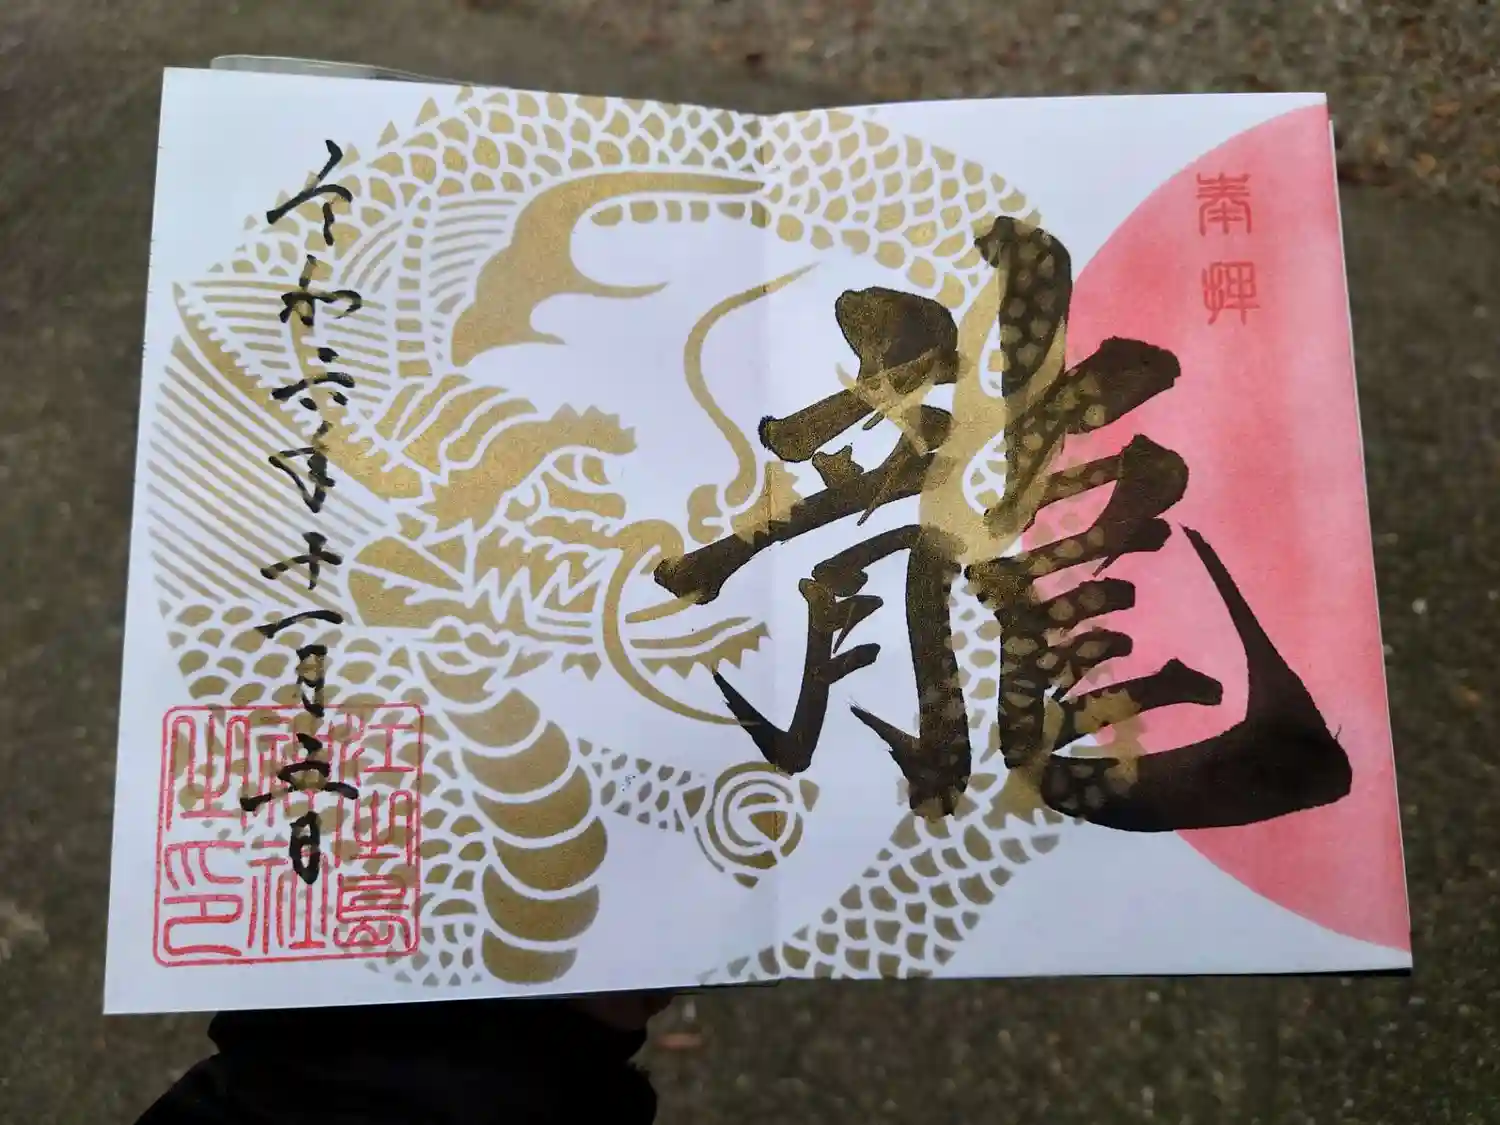 奉拝
龍
令和六年十一月五日
江島
神社
之印